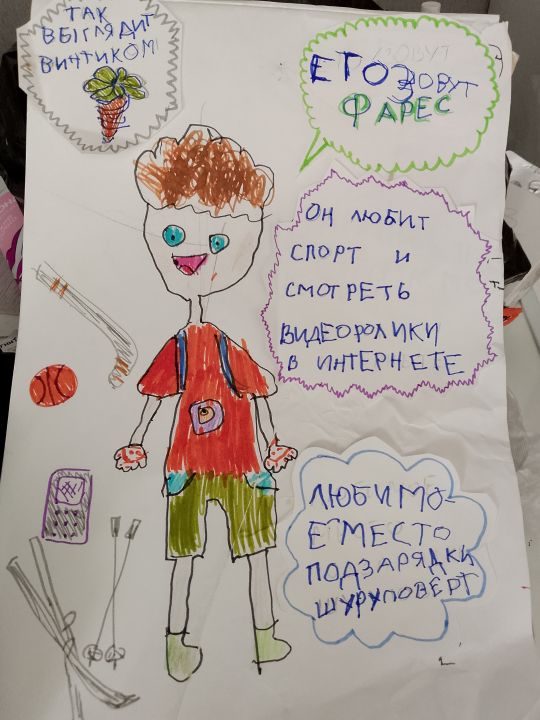 ТАК
ВЫГЛЯДИТ
ВИНТИКОМ
ЕГО ЗОВУТ
ФАРЕС
ОН ЛЮБИТ
СПОРТ И
СМОТРЕТЬ
ВИДЕОРОЛИКИ
В ИНТЕРНЕТЕ
ЛЮБИМО-
Е МЕСТО
ПОДЗАРЯДКИ
ШУРУПОВЕРТ